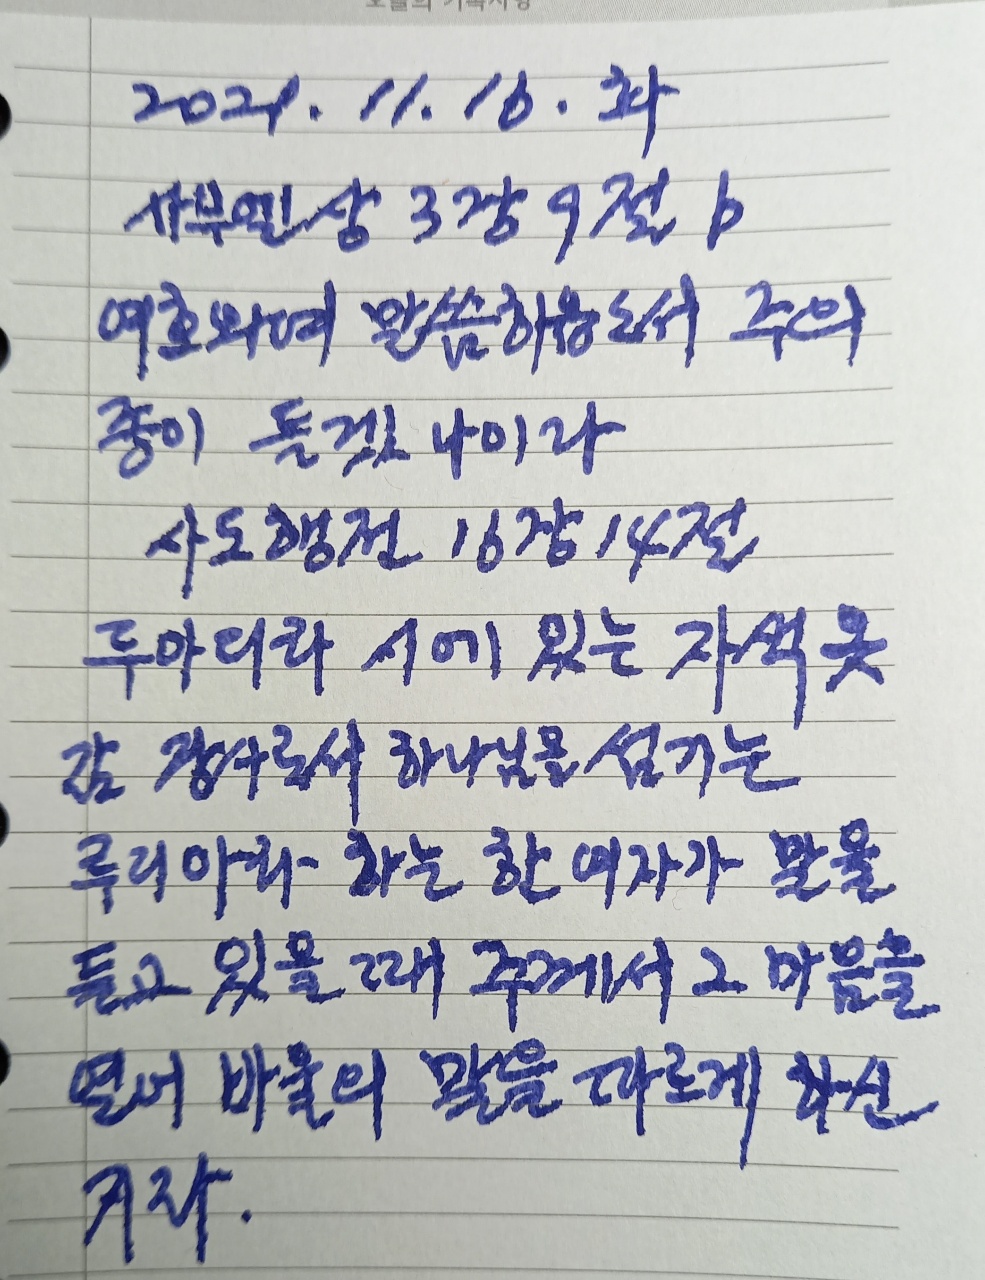 2021. 11. 16. 화
사무엘상 3장 9절 b
여호와여 말씀하옵소서 주의
종이 듣겠나이다
사도행전 16장 14절
두아디라 시에 있는 자색 옷
감 장수로서 하나님을 섬기는
루디아라 하는 한 여자가 말을
듣고 있을 때 주께서 그 마음을
열어 바울의 말을 따르게 하신
지라.